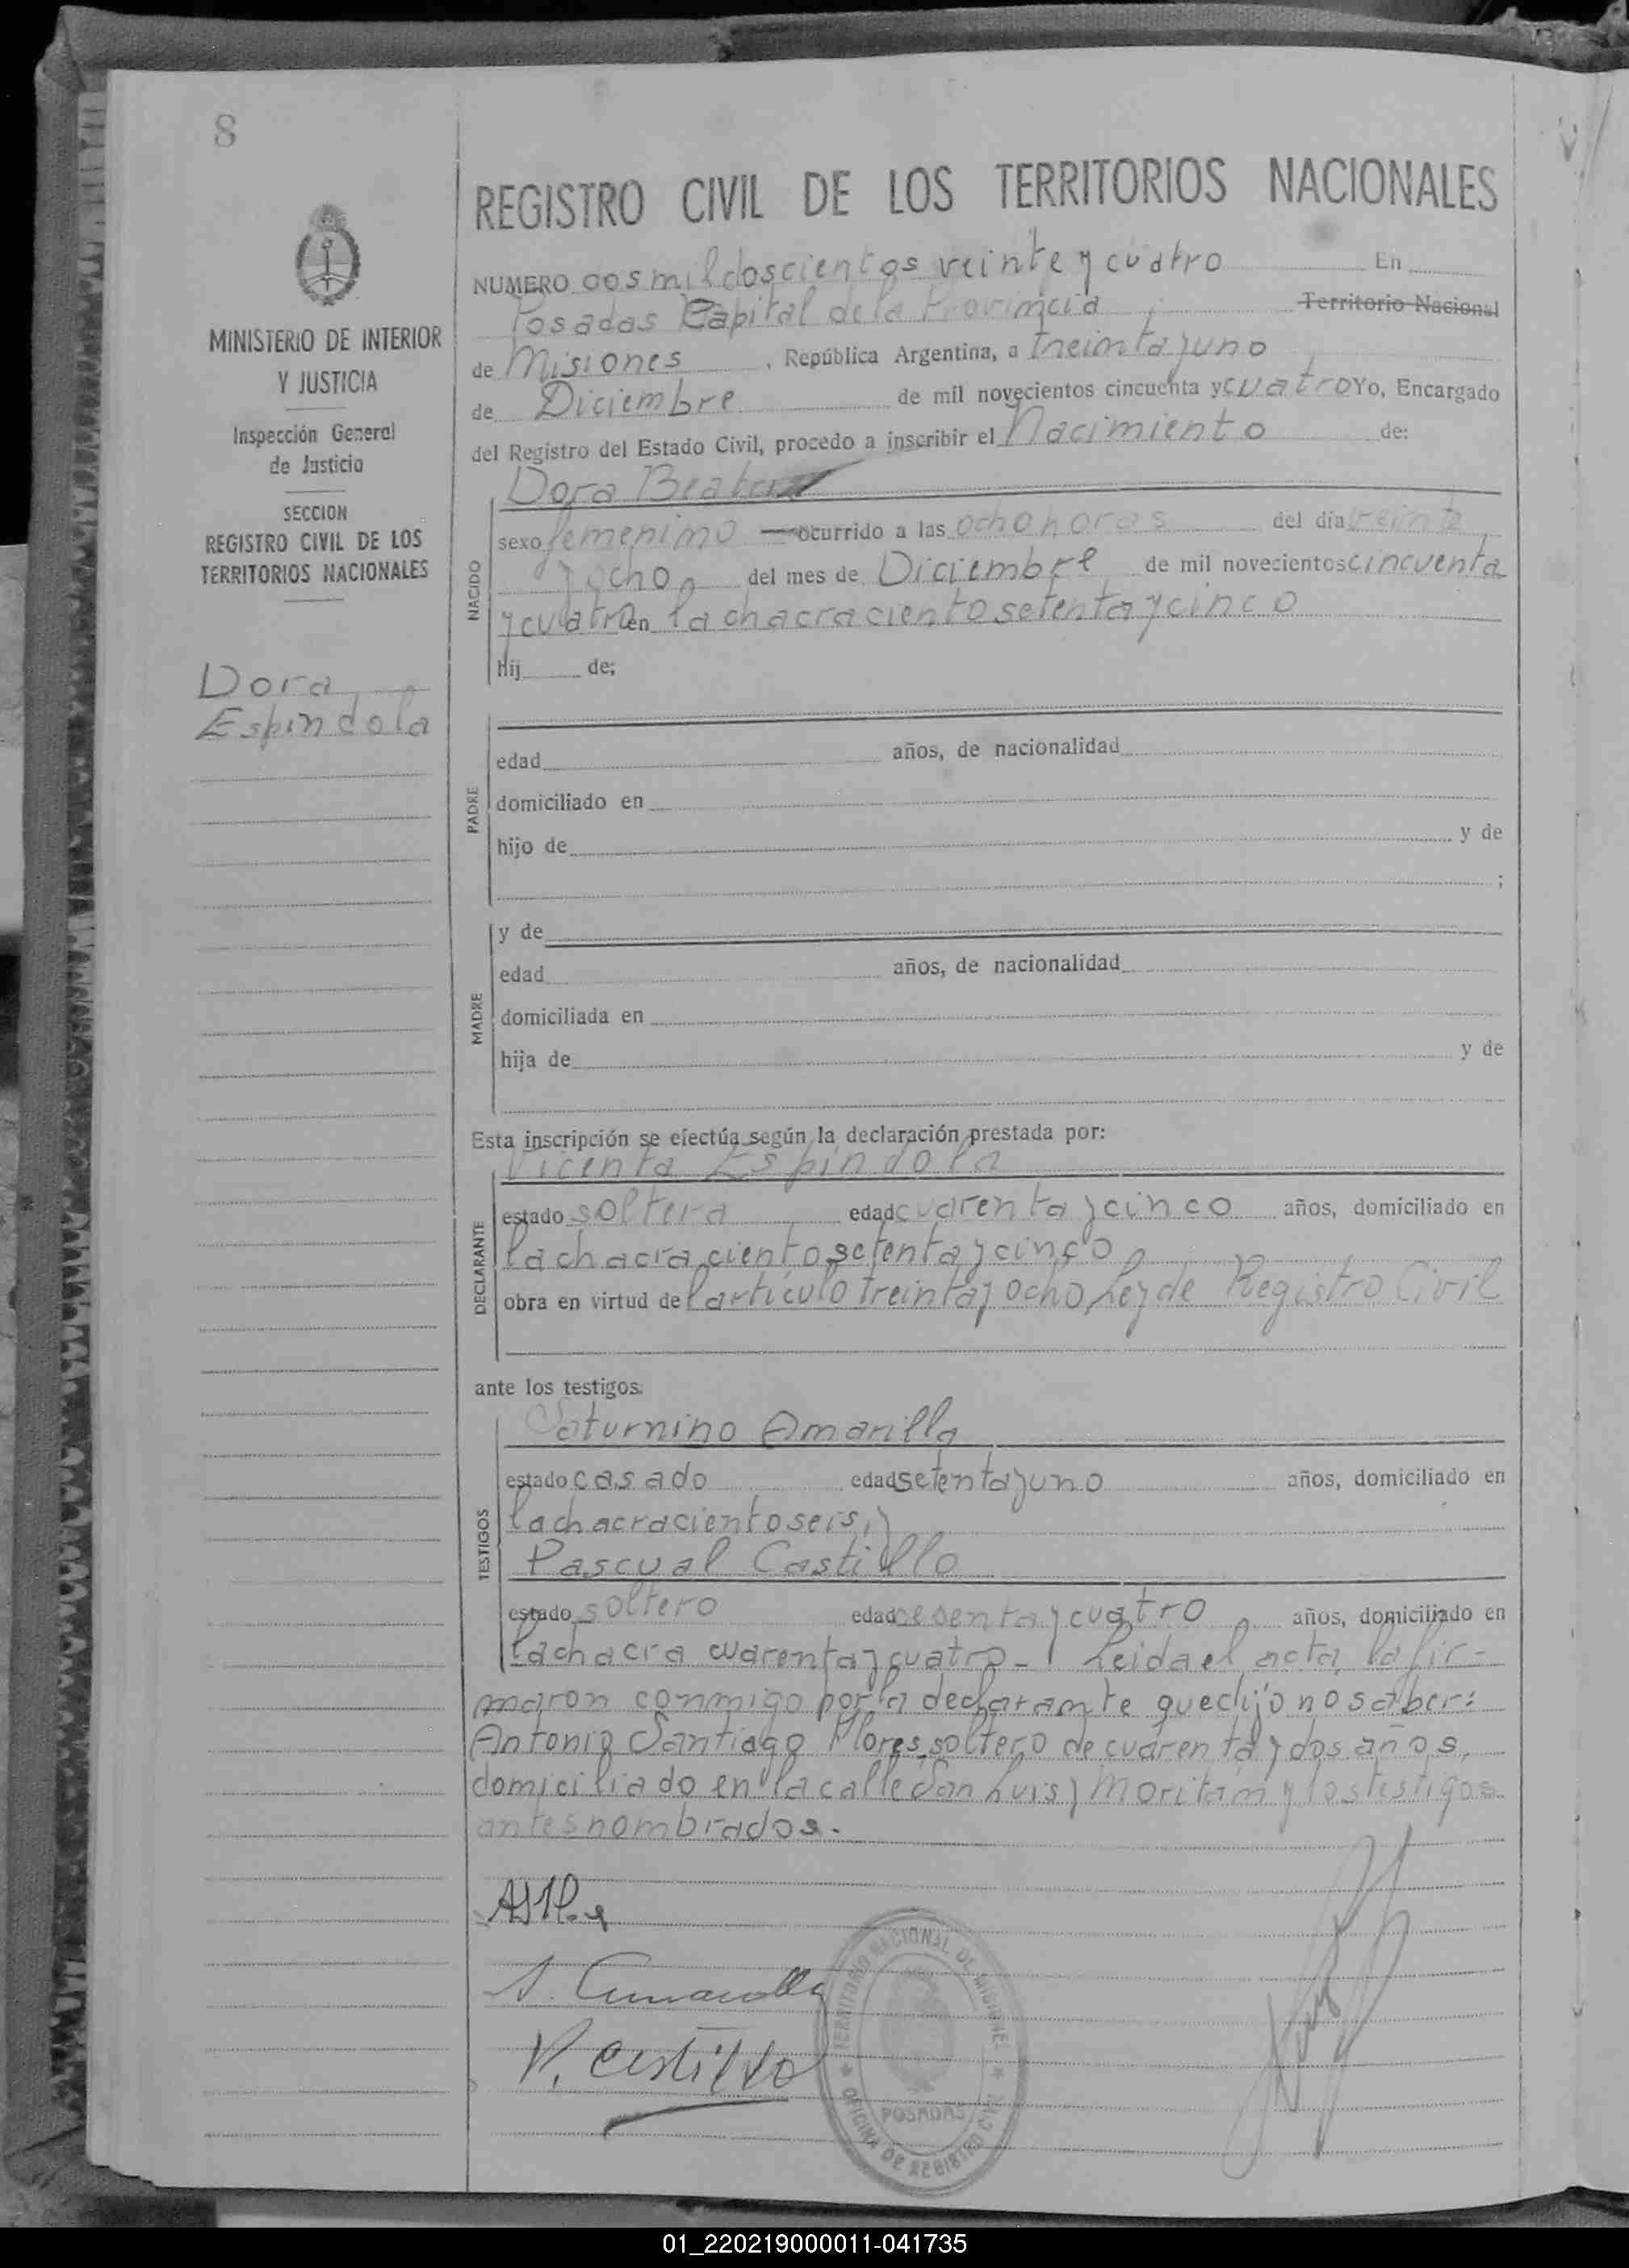 8
MINISTERIO DE INTERIOR
Y JUSTICIA
Inspección General
de Justicia
SECCION
REGISTRO CIVIL DE LOS
TERRITORIOS NACIONALES
Dora
Espindola
REGISTRO CIVIL DE LOS TERRITORIOS NACIONALES
NUMERO dos mil doscientos veinte y cuatro En
Posadas Capital de la Provincia Territorio Nacional
de Misiones, República Argentina, a treinta y uno
de Diciembre de mil novecientos cincuenta y cuatro Yo, Encargado
del Registro del Estado Civil, procedo a inscribir el Nacimiento de:
Dora Beatriz
NACIDO
sexo femenino ocurrido a las ocho horas del día veinte
y ocho del mes de Diciembre de mil novecientos cincuenta
y cuatro en la chacra ciento setenta y cinco
hij de;
PADRE
edad años, de nacionalidad
domiciliado en
hijo de y de
;
MADRE
y de
edad años, de nacionalidad
domiciliada en
hija de y de
Esta inscripción se efectúa según la declaración prestada por:
Vicenta Espindola
DECLARANTE
estado soltera edad cuarenta y cinco años, domiciliado en
la chacra ciento setenta y cinco
obra en virtud del artículo treinta y ocho Ley de Registro Civil
ante los testigos:
Saturnino Amarilla
TESTIGOS
estado casado edad setenta y uno años, domiciliado en
la chacra ciento seis, y
Pascual Castillo
estado soltero edad sesenta y cuatro años, domiciliado en
la chacra cuarenta y cuatro - Leida el acta, la fir-
maron conmigo por la declarante que dijo no saber:
Antonio Santiago Flores, soltero de cuarenta y dos años,
domiciliado en la calle San Luis y Moritan y los testigos
antes nombrados.
S. Amarilla
P. Castillo
TERRITORIO NACIONAL DE MISIONES
POSADAS
OFICINA DE REGISTRO CIVIL
01_220219000011-041735